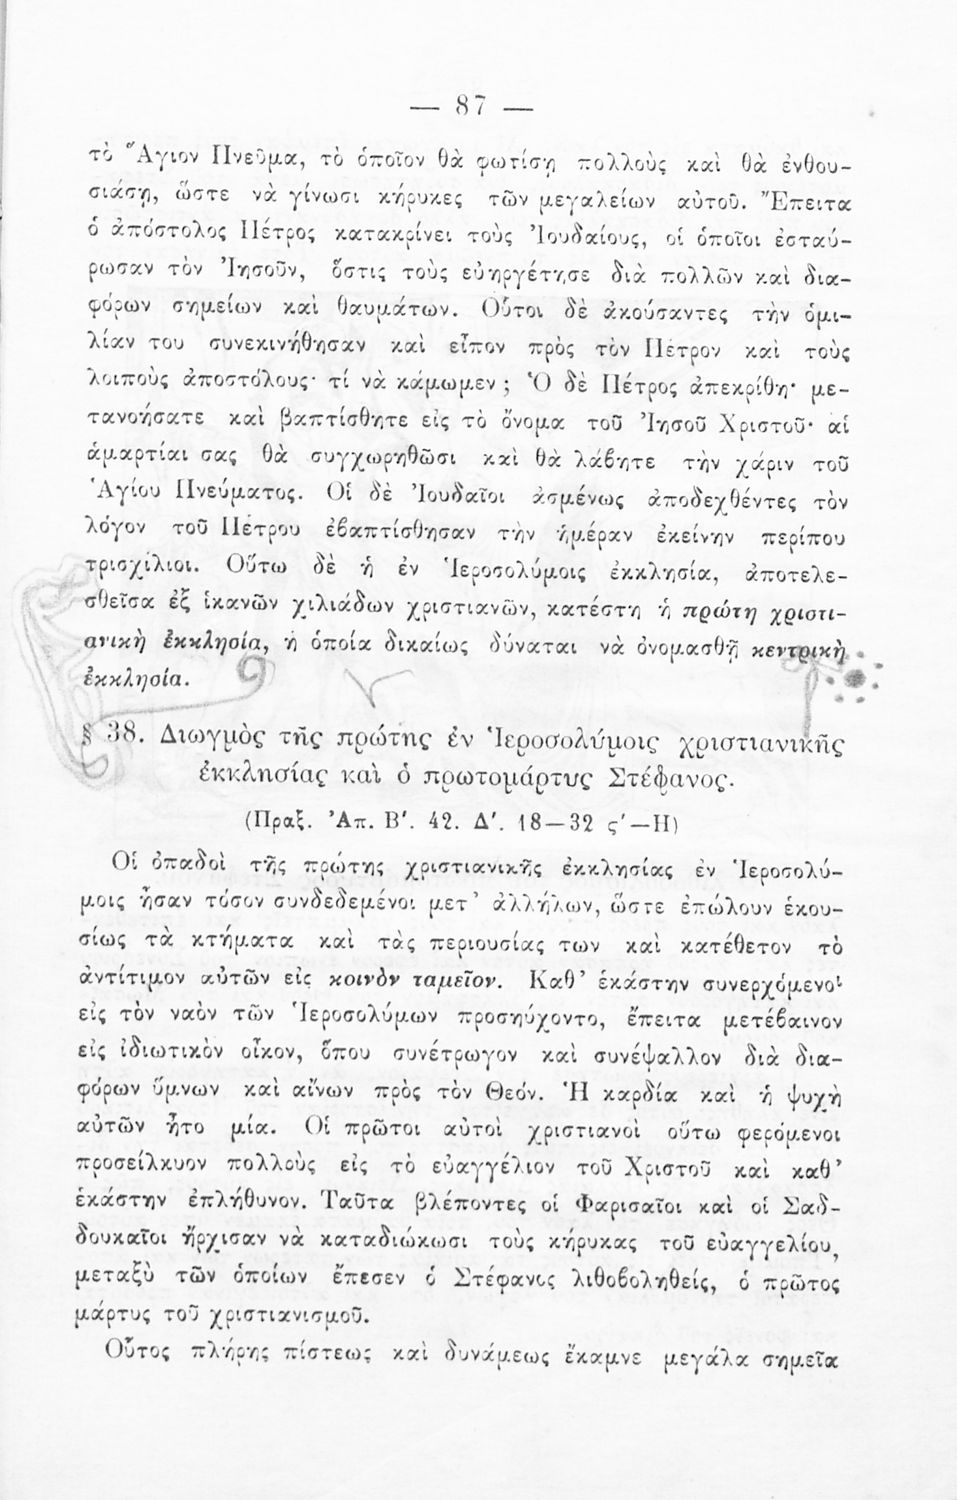 — 87 —
τὸ Ἅγιον Πνεῦμα, τὸ ὁποῖον θὰ φωτίσῃ πολλοὺς καὶ θὰ ἐνθου-
σιάσῃ, ὥστε νὰ γίνωσι κήρυκες τῶν μεγαλείων αὐτοῦ. Ἔπειτα
ὁ ἀπόστολος Πέτρος κατακρίνει τοὺς Ἰουδαίους, οἱ ὁποῖοι ἐσταύ-
ρωσαν τὸν Ἰησοῦν, ὅστις τοὺς εὐηργέτησε διὰ πολλῶν καὶ δια-
φόρων σημείων καὶ θαυμάτων. Οὗτοι δὲ ἀκούσαντες τὴν ὁμι-
λίαν του συνεκινήθησαν καὶ εἶπον πρὸς τὸν Πέτρον καὶ τοὺς
λοιποὺς ἀποστόλους· τί νὰ κάμωμεν ; Ὁ δὲ Πέτρος ἀπεκρίθη· με-
τανοήσατε καὶ βαπτίσθητε εἰς τὸ ὄνομα τοῦ Ἰησοῦ Χριστοῦ· αἱ
ἁμαρτίαι σας θὰ συγχωρηθῶσι καὶ θὰ λάβητε τὴν χάριν τοῦ
Ἁγίου Πνεύματος. Οἱ δὲ Ἰουδαῖοι ἀσμένως ἀποδεχθέντες τὸν
λόγον τοῦ Πέτρου ἐβαπτίσθησαν τὴν ἡμέραν ἐκείνην περίπου
τρισχίλιοι. Οὕτω δὲ ἡ ἐν Ἱεροσολύμοις ἐκκλησία, ἀποτελε-
σθεῖσα ἐξ ἱκανῶν χιλιάδων χριστιανῶν, κατέστη ἡ πρώτη χριστι-
ανικὴ ἐκκλησία, ἡ ὁποία δικαίως δύναται νὰ ὀνομασθῇ κεντρικὴ
ἐκκλησία.
§ 38. Διωγμὸς τῆς πρώτης ἐν Ἱεροσολύμοις χριστιανικῆς
ἐκκλησίας καὶ ὁ πρωτομάρτυς Στέφανος.
(Πραξ. Ἀπ. Β΄. 42. Δ΄. 18—32 ς΄—Η)
Οἱ ὀπαδοὶ τῆς πρώτης χριστιανικῆς ἐκκλησίας ἐν Ἱεροσολύ-
μοις ἦσαν τόσον συνδεδεμένοι μετ᾽ ἀλλήλων, ὥστε ἐπώλουν ἑκου-
σίως τὰ κτήματα καὶ τὰς περιουσίας των καὶ κατέθετον τὸ
ἀντίτιμον αὐτῶν εἰς κοινὸν ταμεῖον. Καθ᾽ ἑκάστην συνερχόμενοι
εἰς τὸν ναὸν τῶν Ἱεροσολύμων προσηύχοντο, ἔπειτα μετέβαινον
εἰς ἰδιωτικὸν οἶκον, ὅπου συνέτρωγον καὶ συνέψαλλον διὰ δια-
φόρων ὕμνων καὶ αἴνων πρὸς τὸν Θεόν. Ἡ καρδία καὶ ἡ ψυχὴ
αὐτῶν ἦτο μία. Οἱ πρῶτοι αὐτοὶ χριστιανοὶ οὕτω φερόμενοι
προσείλκυον πολλοὺς εἰς τὸ εὐαγγέλιον τοῦ Χριστοῦ καὶ καθ᾽
ἑκάστην ἐπλήθυνον. Ταῦτα βλέποντες οἱ Φαρισαῖοι καὶ οἱ Σαδ-
δουκαῖοι ἤρχισαν νὰ καταδιώκωσι τοὺς κήρυκας τοῦ εὐαγγελίου,
μεταξὺ τῶν ὁποίων ἔπεσεν ὁ Στέφανος λιθοβοληθείς, ὁ πρῶτος
μάρτυς τοῦ χριστιανισμοῦ.
Οὗτος πλήρης πίστεως καὶ δυνάμεως ἔκαμνε μεγάλα σημεῖα